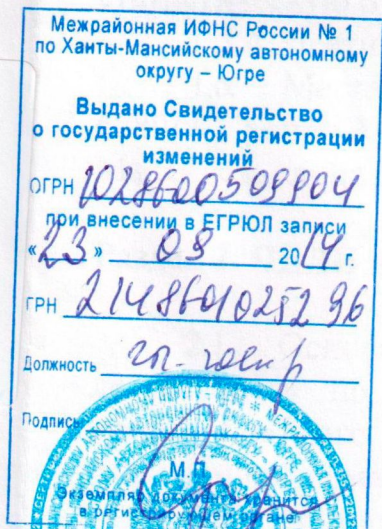 Межрайонная ИФНС России № 1
по Ханты-Мансийскому автономному
округу – Югре
Выдано Свидетельство
о государственной регистрации
изменений
ОГРН 1028600509904
при внесении в ЕГРЮЛ записи
«23» 09 2014 г.
ГРН 2148601025296
Должность
Подпись
М.П.
Экземпляр документа хранится
в регистрирующем органе